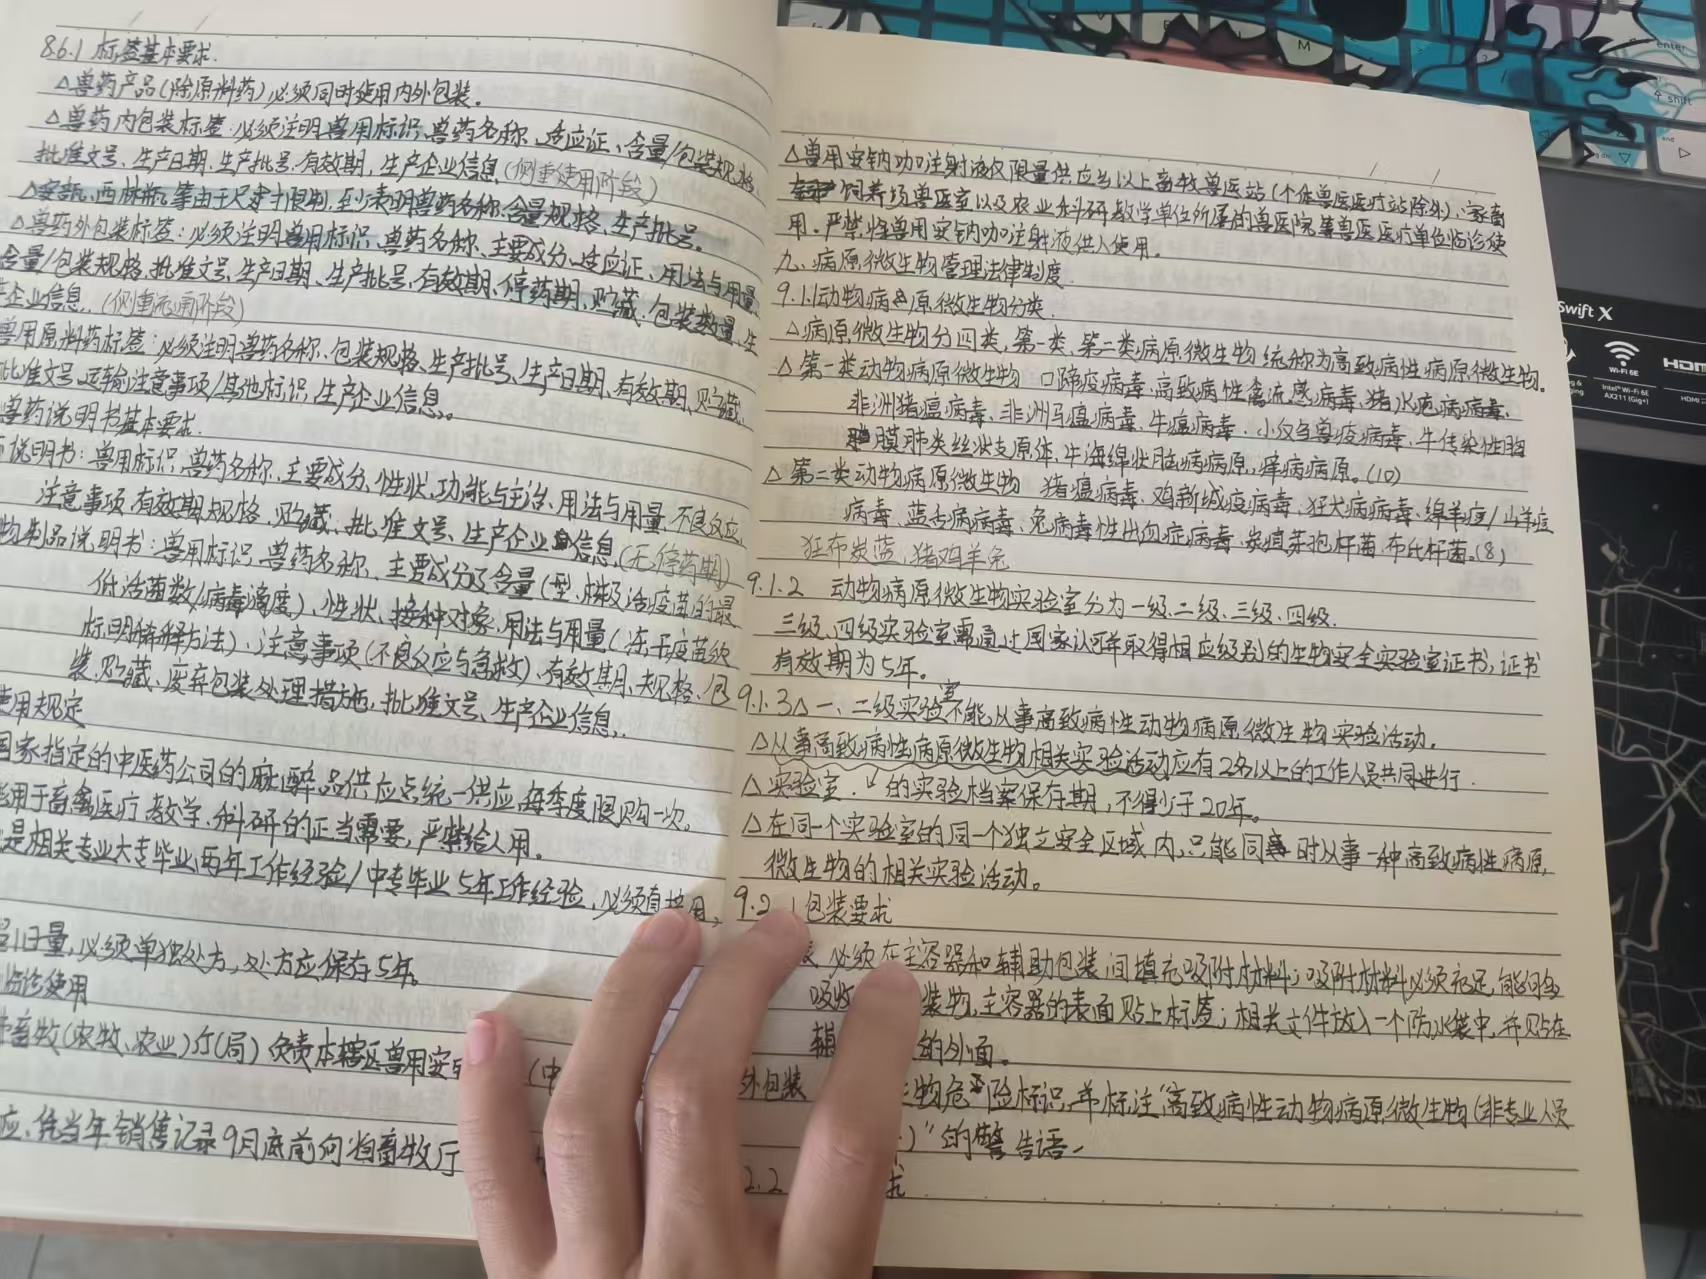 8.6.1 标签基本要求.
△兽药产品(除原料药)必须同时使用内外包装。
△兽药内包装标签:必须注明兽用标识、兽药名称、适应证、含量/包装规格、
批准文号、生产日期、生产批号、有效期、生产企业信息(侧重使用阶段)
△安瓿、西林瓶等由于尺寸限制,至少表明兽药名称、含量规格、生产批号。
△兽药外包装标签:必须注明兽用标识、兽药名称、主要成分、适应证、用法与用量、
含量/包装规格、批准文号、生产日期、生产批号、有效期、停药期、贮藏、包装数量、生
企业信息。(侧重流通阶段)
兽用原料药标签:必须注明兽药名称、包装规格、生产批号、生产日期、有效期、贮藏、
批准文号、运输注意事项/其他标识、生产企业信息。
兽药说明书基本要求.
说明书:兽用标识、兽药名称、主要成分、性状、功能与主治、用法与用量、不良反应、
注意事项、有效期、规格、贮藏、批准文号、生产企业信息(无停药期)
物制品说明书:兽用标识、兽药名称、主要成分及含量(型、株及活疫苗的最
低活菌数/病毒滴度)、性状、接种对象、用法与用量(冻干疫苗须
标明稀释方法)、注意事项(不良反应与急救)、有效期、规格、包
装、贮藏、废弃包装处理措施、批准文号、生产企业信息.
使用规定
国家指定的中医药公司的麻醉品供应点统一供应,每季度限购一次。
用于畜禽医疗、教学、科研的正当需要,严禁给人用。
是相关专业大专毕业两年工作经验/中专毕业5年工作经验,必须直接用,
1日量,必须单独处方,处方应保存5年。
临诊使用
畜牧(农牧、农业)厅(局)负责本辖区兽用安
应、凭当年销售记录9月底前向省畜牧厅
△兽用安钠咖注射液仅限量供应当以上畜牧兽医站(个体兽医医疗站除外)、家畜
饲养场兽医室以及农业科研教学单位所属的兽医院等兽医医疗单位临诊使
用。严禁将兽用安钠咖注射液供人使用。
九、病原微生物管理法律制度.
9.1.1动物病原微生物分类.
△病原微生物分四类,第一类、第二类病原微生物统称为高致病性病原微生物。
△第一类动物病原微生物 口蹄疫病毒、高致病性禽流感病毒、猪水疱病病毒、
非洲猪瘟病毒、非洲马瘟病毒、牛瘟病毒、小反刍兽疫病毒、牛传染性胸
膜肺炎丝状支原体、牛海绵状脑病病原、痒病病原。(10)
△第二类动物病原微生物 猪瘟病毒、鸡新城疫病毒、狂犬病病毒、绵羊痘/山羊痘
病毒、蓝舌病病毒、兔病毒性出血症病毒、炭疽芽孢杆菌、布氏杆菌。(8)
狂布炭蓝,猪鸡羊兔
9.1.2 动物病原微生物实验室分为一级、二级、三级、四级.
三级、四级实验室需通过国家认可并取得相应级别的生物安全实验室证书,证书
有效期为5年。
9.1.3△一、二级实验室不能从事高致病性动物病原微生物实验活动。
△从事高致病性病原微生物相关实验活动应有2名以上的工作人员共同进行.
△实验室.〃的实验档案保存期,不得少于20年。
△在同一个实验室的同一个独立安全区域内,只能同时从事一种高致病性病原
微生物的相关实验活动。
9.2.1包装要求
必须在主容器和辅助包装间填充吸附材料;吸附材料必须充足,能够
吸收 装物,主容器的表面贴上标签;相关文件放入一个防水袋中,并贴在
辅 的外面。
外包装 物危险标识,并标注"高致病性动物病原微生物(非专业人员
)"的警告语.
2.2 求
enter
shift
M
Swift X
Wi-Fi 6E
Intel® Wi-Fi 6E
AX211 (Gig+)